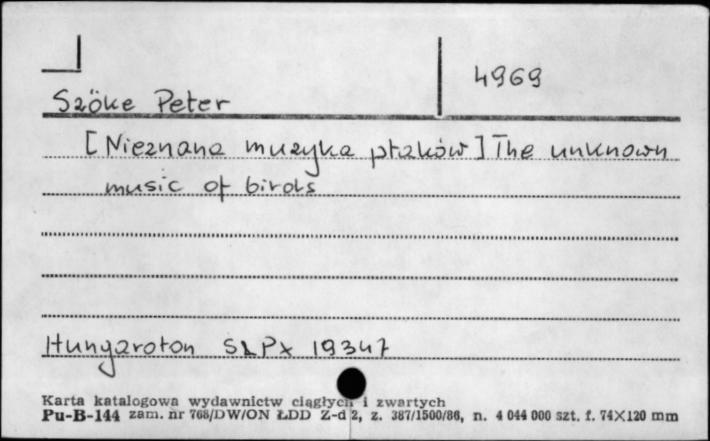 4969
Szöke Peter
[Nieznana muzyka ptaków] The unknown
music of birds
Hungaroton SLPX 19347
Karta katalogowa wydawnictw ciągłych i zwartych
Pu-B-144 zam. nr 768/DW/ON ŁDD Z-d 2, z. 387/1500/86, n. 4 044 000 szt. f. 74X120 mm